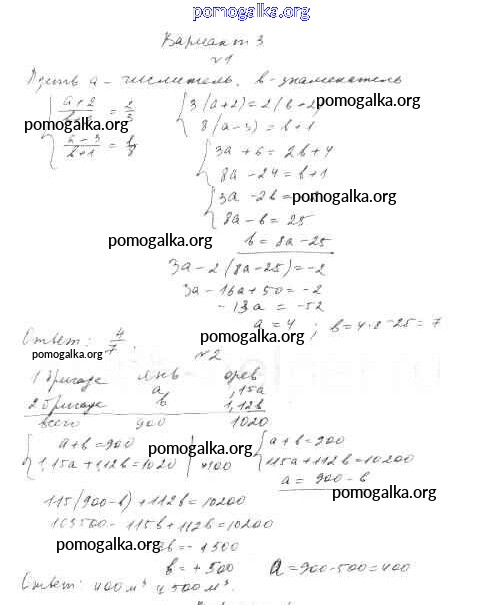 pomogalka.org
Вариант 3
№1
Пусть a - числитель, b - знаменатель
{ (a+2)/ = 2/3 { 3(a+2) = 2(b+2)
pomogalka.org
pomogalka.org
(a-3)/(b+1) = 1/8 8(a-3) = b+1
{ 3a + 6 = 2b + 4
8a - 24 = b+1
{ 3a - 2b = pomogalka.org
8a - b = 25
pomogalka.org
b = 8a - 25
3a - 2(8a-25) = -2
3a - 16a + 50 = -2
-13a = -52
a = 4 ; b = 4·8-25 = 7
Ответ: 4/7.
pomogalka.org
pomogalka.org
№2
янв фев
1 бригада a 1,15a
2 бригада b 1,12b
всего 900 1020
{ a+b=900 { a+b=900
pomogalka.org
1,15a+1,12b=1020 | *100 115a+112b=102000
pomogalka.org
a = 900 - b
115(900-b)+112b=10200
103500-115b+112b=10200
pomogalka.org
3b=-1500
b = +500 a=900-500=400
Ответ: 400м³ и 500м³.